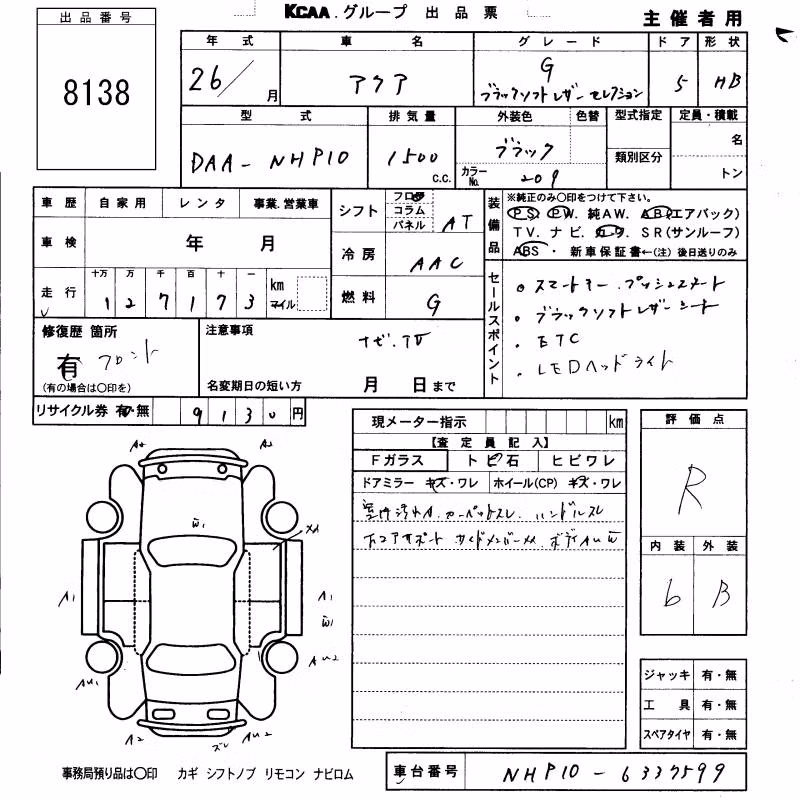 出品番号
8138
KCAA グループ 出品票
主催者用
年式 車名 グレード ドア 形状
26/ 月 アクア G 5 HB
ブラックソフトレザーセレクション
型式 排気量 外装色 色替 型式指定 定員・積載
DAA-NHP10 1500 C.C. ブラック 類別区分 名
カラーNo. 209 トン
車歴 自家用 レンタ 事業.営業車
車検 年 月
走行 十万 万 千 百 十 一 km マイル
1 2 7 1 7 3
シフト フロア コラム パネル AT
冷房 AAC
燃料 G
装備品
※純正のみ〇印をつけて下さい。
PS. PW. 純AW. AB(エアバック)
TV. ナビ. カワ. SR(サンルーフ)
ABS・ 新車保証書←(注)後日送りのみ
セールスポイント
。スマートキー.プッシュスタート
・ブラックソフトレザーシート
・ETC
・LEDヘッドライト
修復歴 箇所
有 フロント
(有の場合は〇印を)
注意事項
ナビ.TV
名変期日の短い方 月 日まで
リサイクル券 有・無 9130円
現メーター指示 km
【査定員記入】
Fガラス トビ石 ヒビワレ
ドアミラー キズ・ワレ ホイール(CP) キズ・ワレ
室内汚れA.カーペットスレ.ハンドルスレ
コアサポート サイドメンバーXX.ボディAUW
評価点
R
内装 外装
6 B
A2 A2
W1
XX
A1 A1
W1
AU1 AU2
A2 ズレ AU2
ジャッキ 有・無
工具 有・無
スペアタイヤ 有・無
事務局預り品は〇印 カギ シフトノブ リモコン ナビロム
車台番号 NHP10-6337599